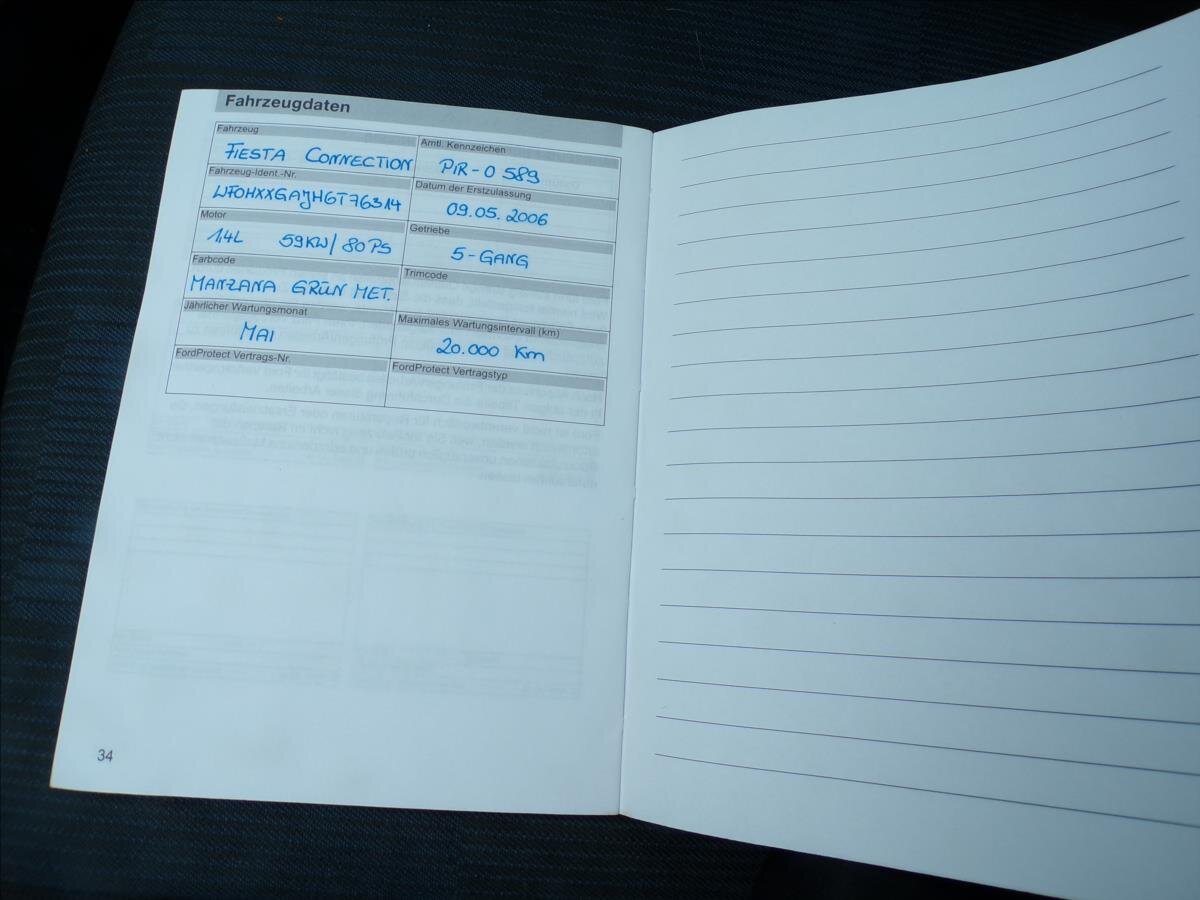 Fahrzeugdaten
Fahrzeug
FIESTA CONNECTION
Amtl. Kennzeichen
PIR-O 589
Fahrzeug-Ident.-Nr.
WFOHXXGAJH6T76314
Datum der Erstzulassung
09.05.2006
Motor
1,4L 59KW/80PS
Getriebe
5-GANG
Farbcode
MANZANA GRÜN MET.
Trimcode
Jährlicher Wartungsmonat
MAI
Maximales Wartungsintervall (km)
20.000 Km
FordProtect Vertrags-Nr.
FordProtect Vertragstyp
34